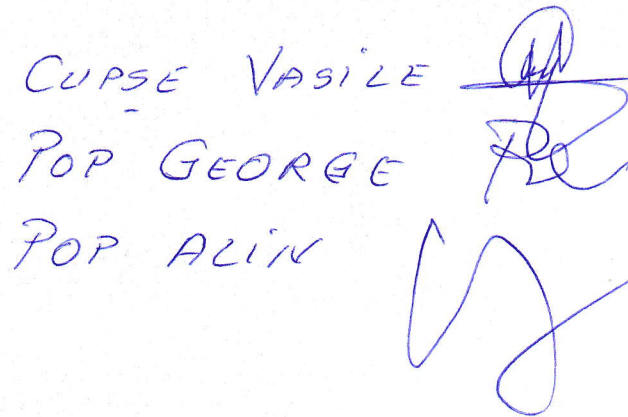 CUPȘE VASILE
POP GEORGE
POP ALIN